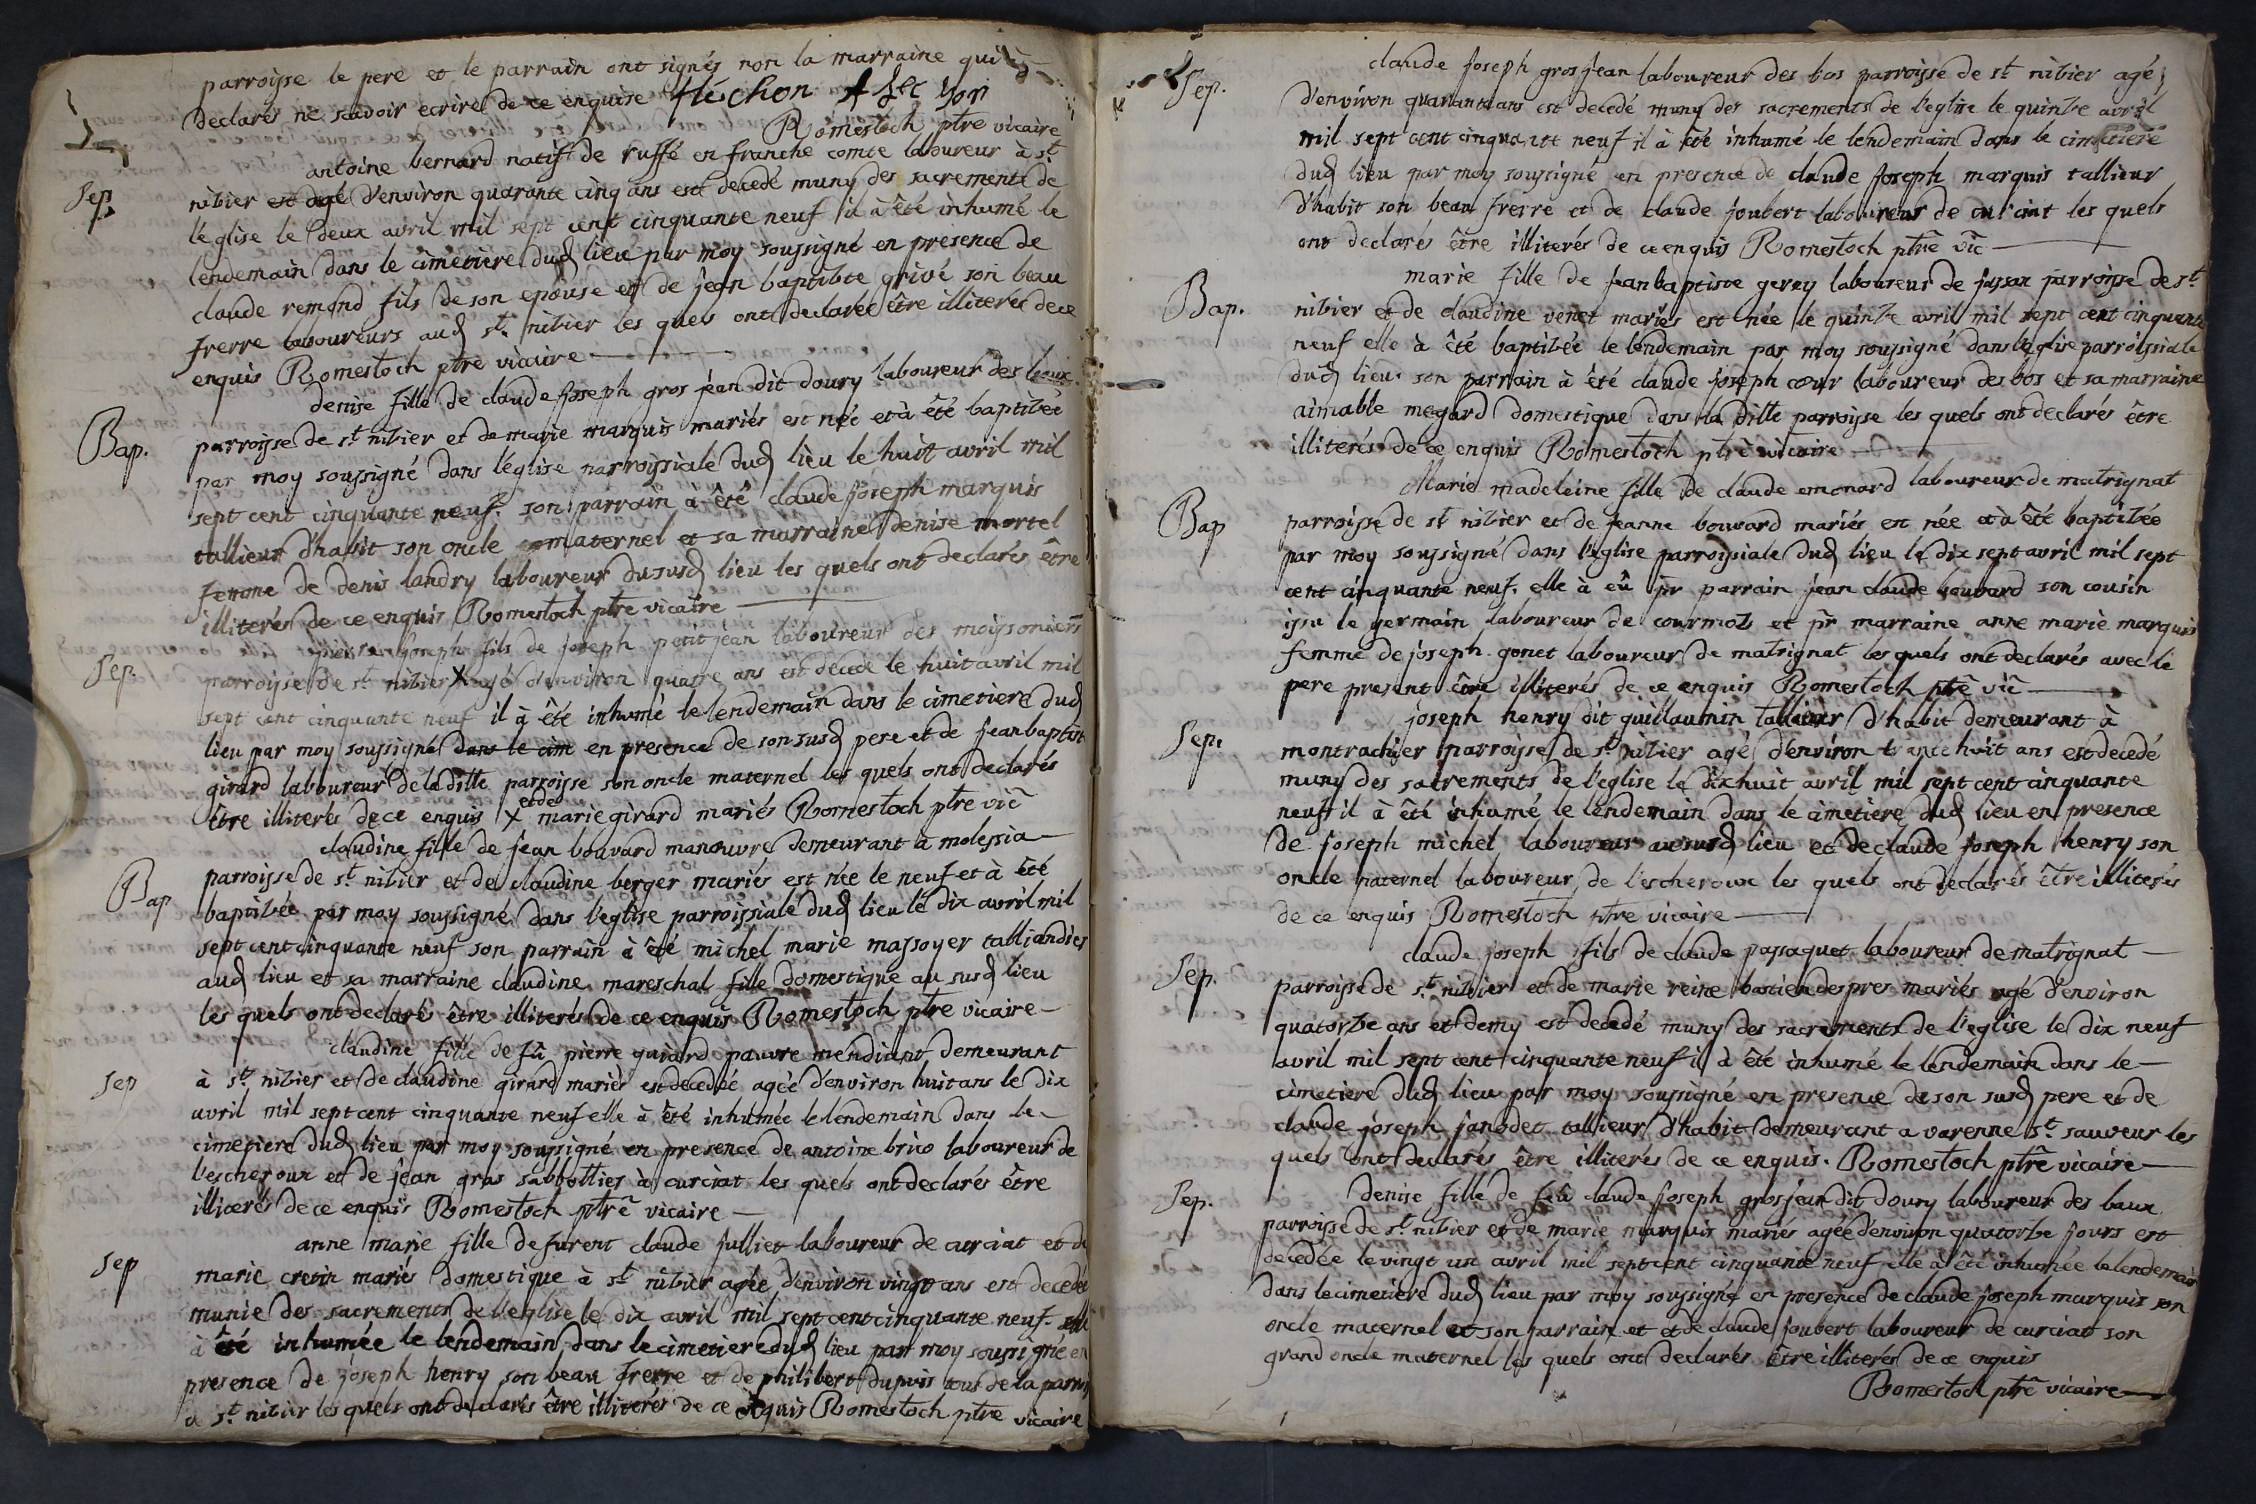 parroisse le pere et le parrain ont signés non la marraine qui à
declarés ne scavoir ecrire de ce enquise fléchon
Romestoch ptre vicaire
Sep.
antoine bernard natif de ruffé en franche comte laboureur à st
nibier et agé d'environ quarante cinq ans est decedé muny des sacrements de
l'eglise le deux avril mil sept cent cinquante neuf il à été inhumé le
lendemain dans le cimetiere dud lieu par moy soussigné en presence de
claude remond fils de son epouse et de jean baptibte grivé son beau
frerre laboureurs aud st nibier les quels ont declarés être illiterés de ce
enquis Romestoch ptre vicaire
Bap.
denise fille de claude joseph gros jean dit doury laboureur des baux
parroisse de st nibier et de marie marquis mariés est née et à été baptibée
par moy soussigné dans l'eglise parroissiale dud lieu le huit avril mil
sept cent cinquante neuf. son parrain à été claude joseph marquis
tallieur d'habit son oncle maternel et sa marraine denise mortel
femme de denis landry laboureur du susd lieu les quels ont declarés être
illiterés de ce enquis Romestoch ptre vicaire
Sep.
pierre joseph fils de joseph petitjean laboureur des moissoniers
parroisse de st nibier X agé d'environ quatre ans est decedé le huit avril mil
sept cent cinquante neuf il à été inhumé le lendemain dans le cimetiere dud
lieu par moy soussigné dans le cim en presence de son susd pere et de jean baptist
girard laboureur de la ditte parroisse son oncle maternel les quels ont declarés
être illiterés de ce enquis X et de marie girard mariés Romestoch ptre vic
Bap
claudine fille de jean bouvard manouvre demeurant à molessia
parroisse de st nibier et de claudine berger mariés est née le neuf et à été
baptibée par moy soussigné dans l'eglise parroissiale dud lieu le dix avril mil
sept cent cinquante neuf son parrain à été michel marie massoyer talliandier
aud lieu et sa marraine claudine mareschal fille domestique au susd lieu
les quels ont declarés être illiterés de ce enquis Romestoch ptre vicaire
Sep
claudine fille de fû pierre guiard pauvre mendiant demeurant
à st nibier et de claudine girard mariés est decedée agée d'environ huit ans le dix
avril mil sept cent cinquante neuf elle à été inhumée le lendemain dans le
cimetiere dud lieu par moy soussigné en presence de antoine brico laboureur de
l'escheroux et de jean gras sabbottier à curciat les quels ont declarés être
illiterés de ce enquis Romestoch ptrê vicaire
Sep
anne marie fille de furent claude julliet laboureur de curciat et de
marie cretin mariés domestique à st nibier agée d'environ vingt ans est decedée
munie des sacrements de l'eglise le dix avril mil sept cent cinquante neuf. elle
à été inhumée le lendemain dans le cimetiere dud lieu par moy soussigné en
presence de joseph henry son beau frerre et de philibert dupuis tous de la parroi
de st nibier les quels ont declarés être illiterés de ce enquis Romestoch ptre vicaire
Sep.
claude joseph gros jean laboureur des bos parroisse de st nibier agé
d'environ quarante ans est decedé muny des sacrements de l'eglise le quinbe avril
mil sept cent cinquante neuf il à été inhumé le lendemain dans le cimetiere
dud lieu par moy soussigné en presence de claude joseph marquis tallieur
d'habit son beau frerre et de claude joubert laboureur de curciat les quels
ont declarés être illiterés de ce enquis Romestoch ptrê vic
Bap.
marie fille de jean baptiste gerey laboureur de parroisse de st
nibier et de claudine venet mariés est née le quinbe avril mil sept cent cinquante
neuf elle à été baptibée le lendemain par moy soussigné dans l'eglise parroissiale
dud lieu son parrain à été claude joseph cœur laboureur des bos et sa marraine
aimable megard domestique dans la ditte parroisse les quels ont declarés être
illiterés de ce enquis Romestoch ptrê vicaire
Bap
Marie madeleine fille de claude emonard laboureur de matrignat
parroisse de st nibier et de jeanne bouvard mariés est née et à été baptibée
par moy soussigné dans l'eglise parroissiale dud lieu le dix sept avril mil sept
cent cinquante neuf. elle à eû pr parrain jean claude bouvard son cousin
issu le germain laboureur de courmob et pr marraine anne marie marquis
femme de joseph gonet laboureur de matrignat les quels ont declarés avec le
pere present être illiterés de ce enquis Romestoch ptrê vic
Sep.
joseph henry dit guillaumin tallieur d'habit demeurant à
montrachier parroisse de st nibier agé d'environ trante huit ans est decedé
muny des sacrements de l'eglise le dixhuit avril mil sept cent cinquante
neuf il à été inhumé le lendemain dans le cimetiere dud lieu en presence
de joseph michel laboureur au susd lieu et de claude joseph henry son
oncle paternel laboureur de l'escheroux les quels ont declarés être illiterés
de ce enquis Romestoch ptre vicaire
Sep.
claude joseph fils de claude passaquet laboureur de matrignat
parroisse de st nibier et de marie reine bastien despres mariés agé d'environ
quatorbe ans et demy est decedé muny des sacrements de l'eglise le dix neuf
avril mil sept cent cinquante neuf il à été inhumé le lendemain dans le
cimetiere dud lieu par moy soussigné en presence de son susd pere et de
claude joseph janodet tallieur d'habit demeurant a varenne st sauveur les
quels ont declarés être illiterés de ce enquis. Romestoch ptrê vicaire
Sep.
denise fille de feû claude joseph grosjean dit doury laboureur des baux
parroisse de st nibier et de marie marquis mariés agée d'environ quatorbe jours est
decedée le vingt un avril mil sept cent cinquante neuf elle à été inhumée le lendemain
dans le cimetiere dud lieu par moy soussigné en presence de claude joseph marquis son
oncle maternel et son parrain et et de claude joubert laboureur de curciat son
grand oncle maternel les quels ont declarés être illiterés de ce enquis
Romestoch ptrê vicaire